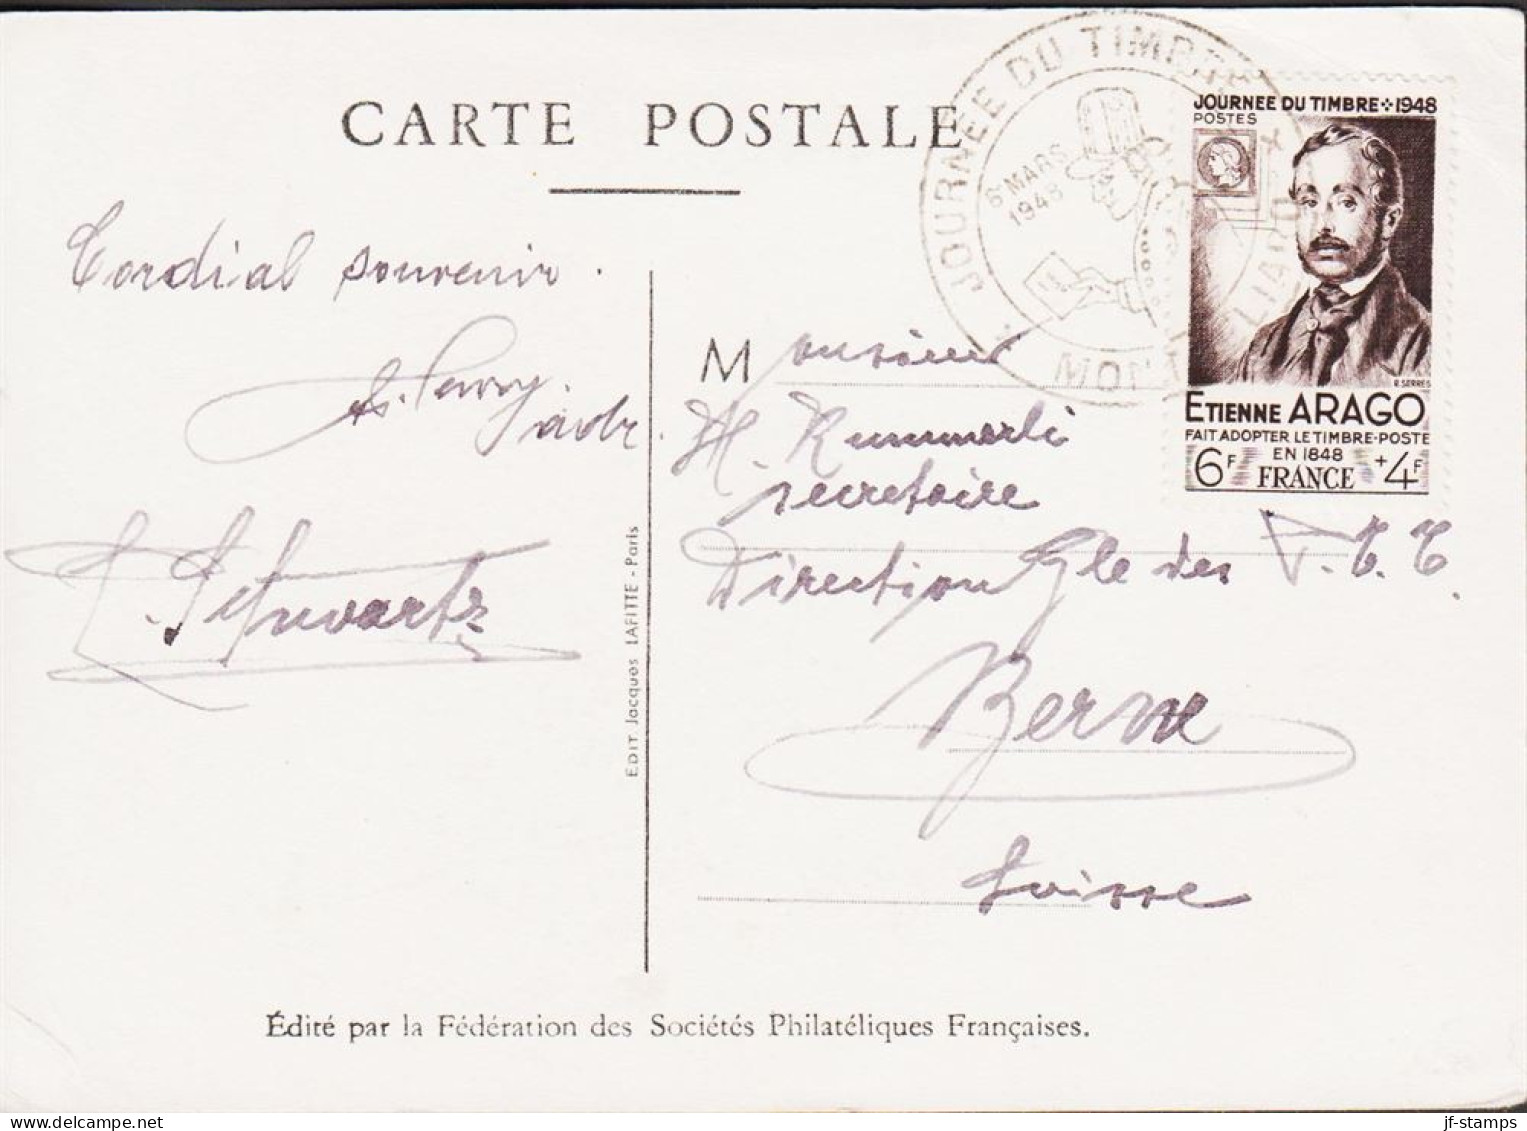 CARTE POSTALE
JOURNEE DU TIMBRE
6 MARS
1948
JOURNEE DU TIMBRE 1948
POSTES
R. SERRES
ETIENNE ARAGO
FAIT ADOPTER LE TIMBRE-POSTE
EN 1848
6F FRANCE +4F
Cordial souvenir.
Schwartz
EDIT. Jacques LAFITTE - Paris
Monsieur
H. Rummerli
secretaire
Direction Gle des P.T.T.
Berne
Suisse
Édité par la Fédération des Sociétés Philatéliques Françaises.
jf-stamps